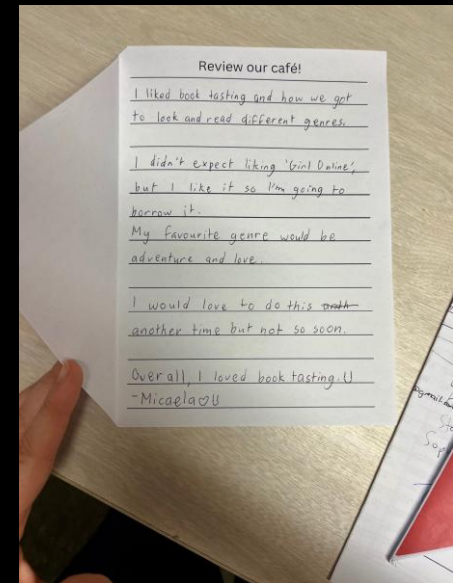 Review our café!
I liked book tasting and how we got
to look and read different genres.
I didn't expect liking 'Girl Online',
but I like it so I'm going to
borrow it.
My favourite genre would be
adventure and love.
I would love to do this
another time but not so soon.
Overall, I loved book tasting.
-Micaela♡
gmail